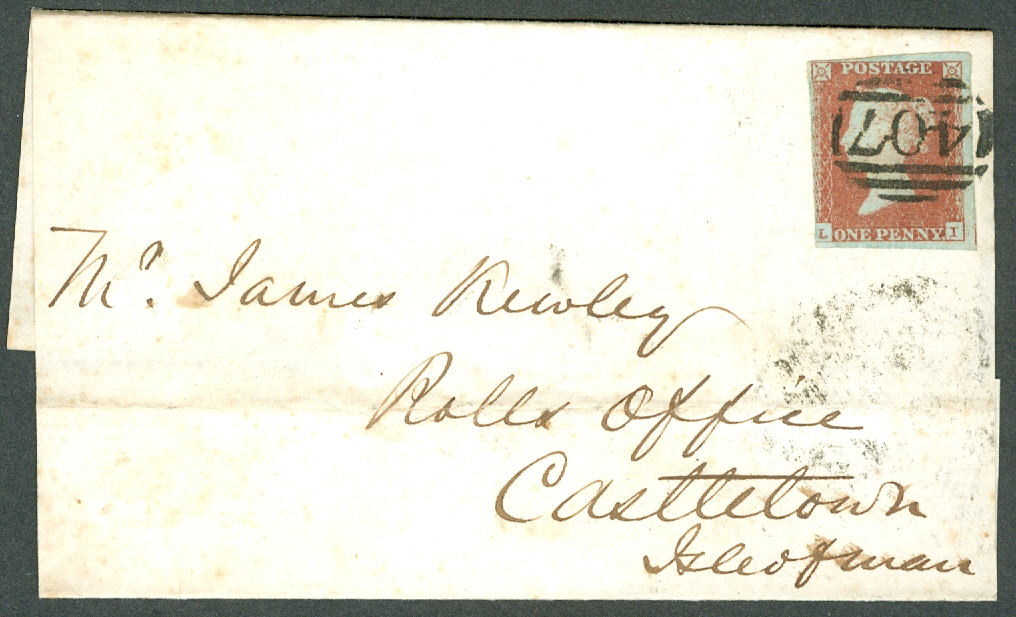 POSTAGE
407
L ONE PENNY I
Mr. James Kewley
Rolls Office
Castletown
Isle of man